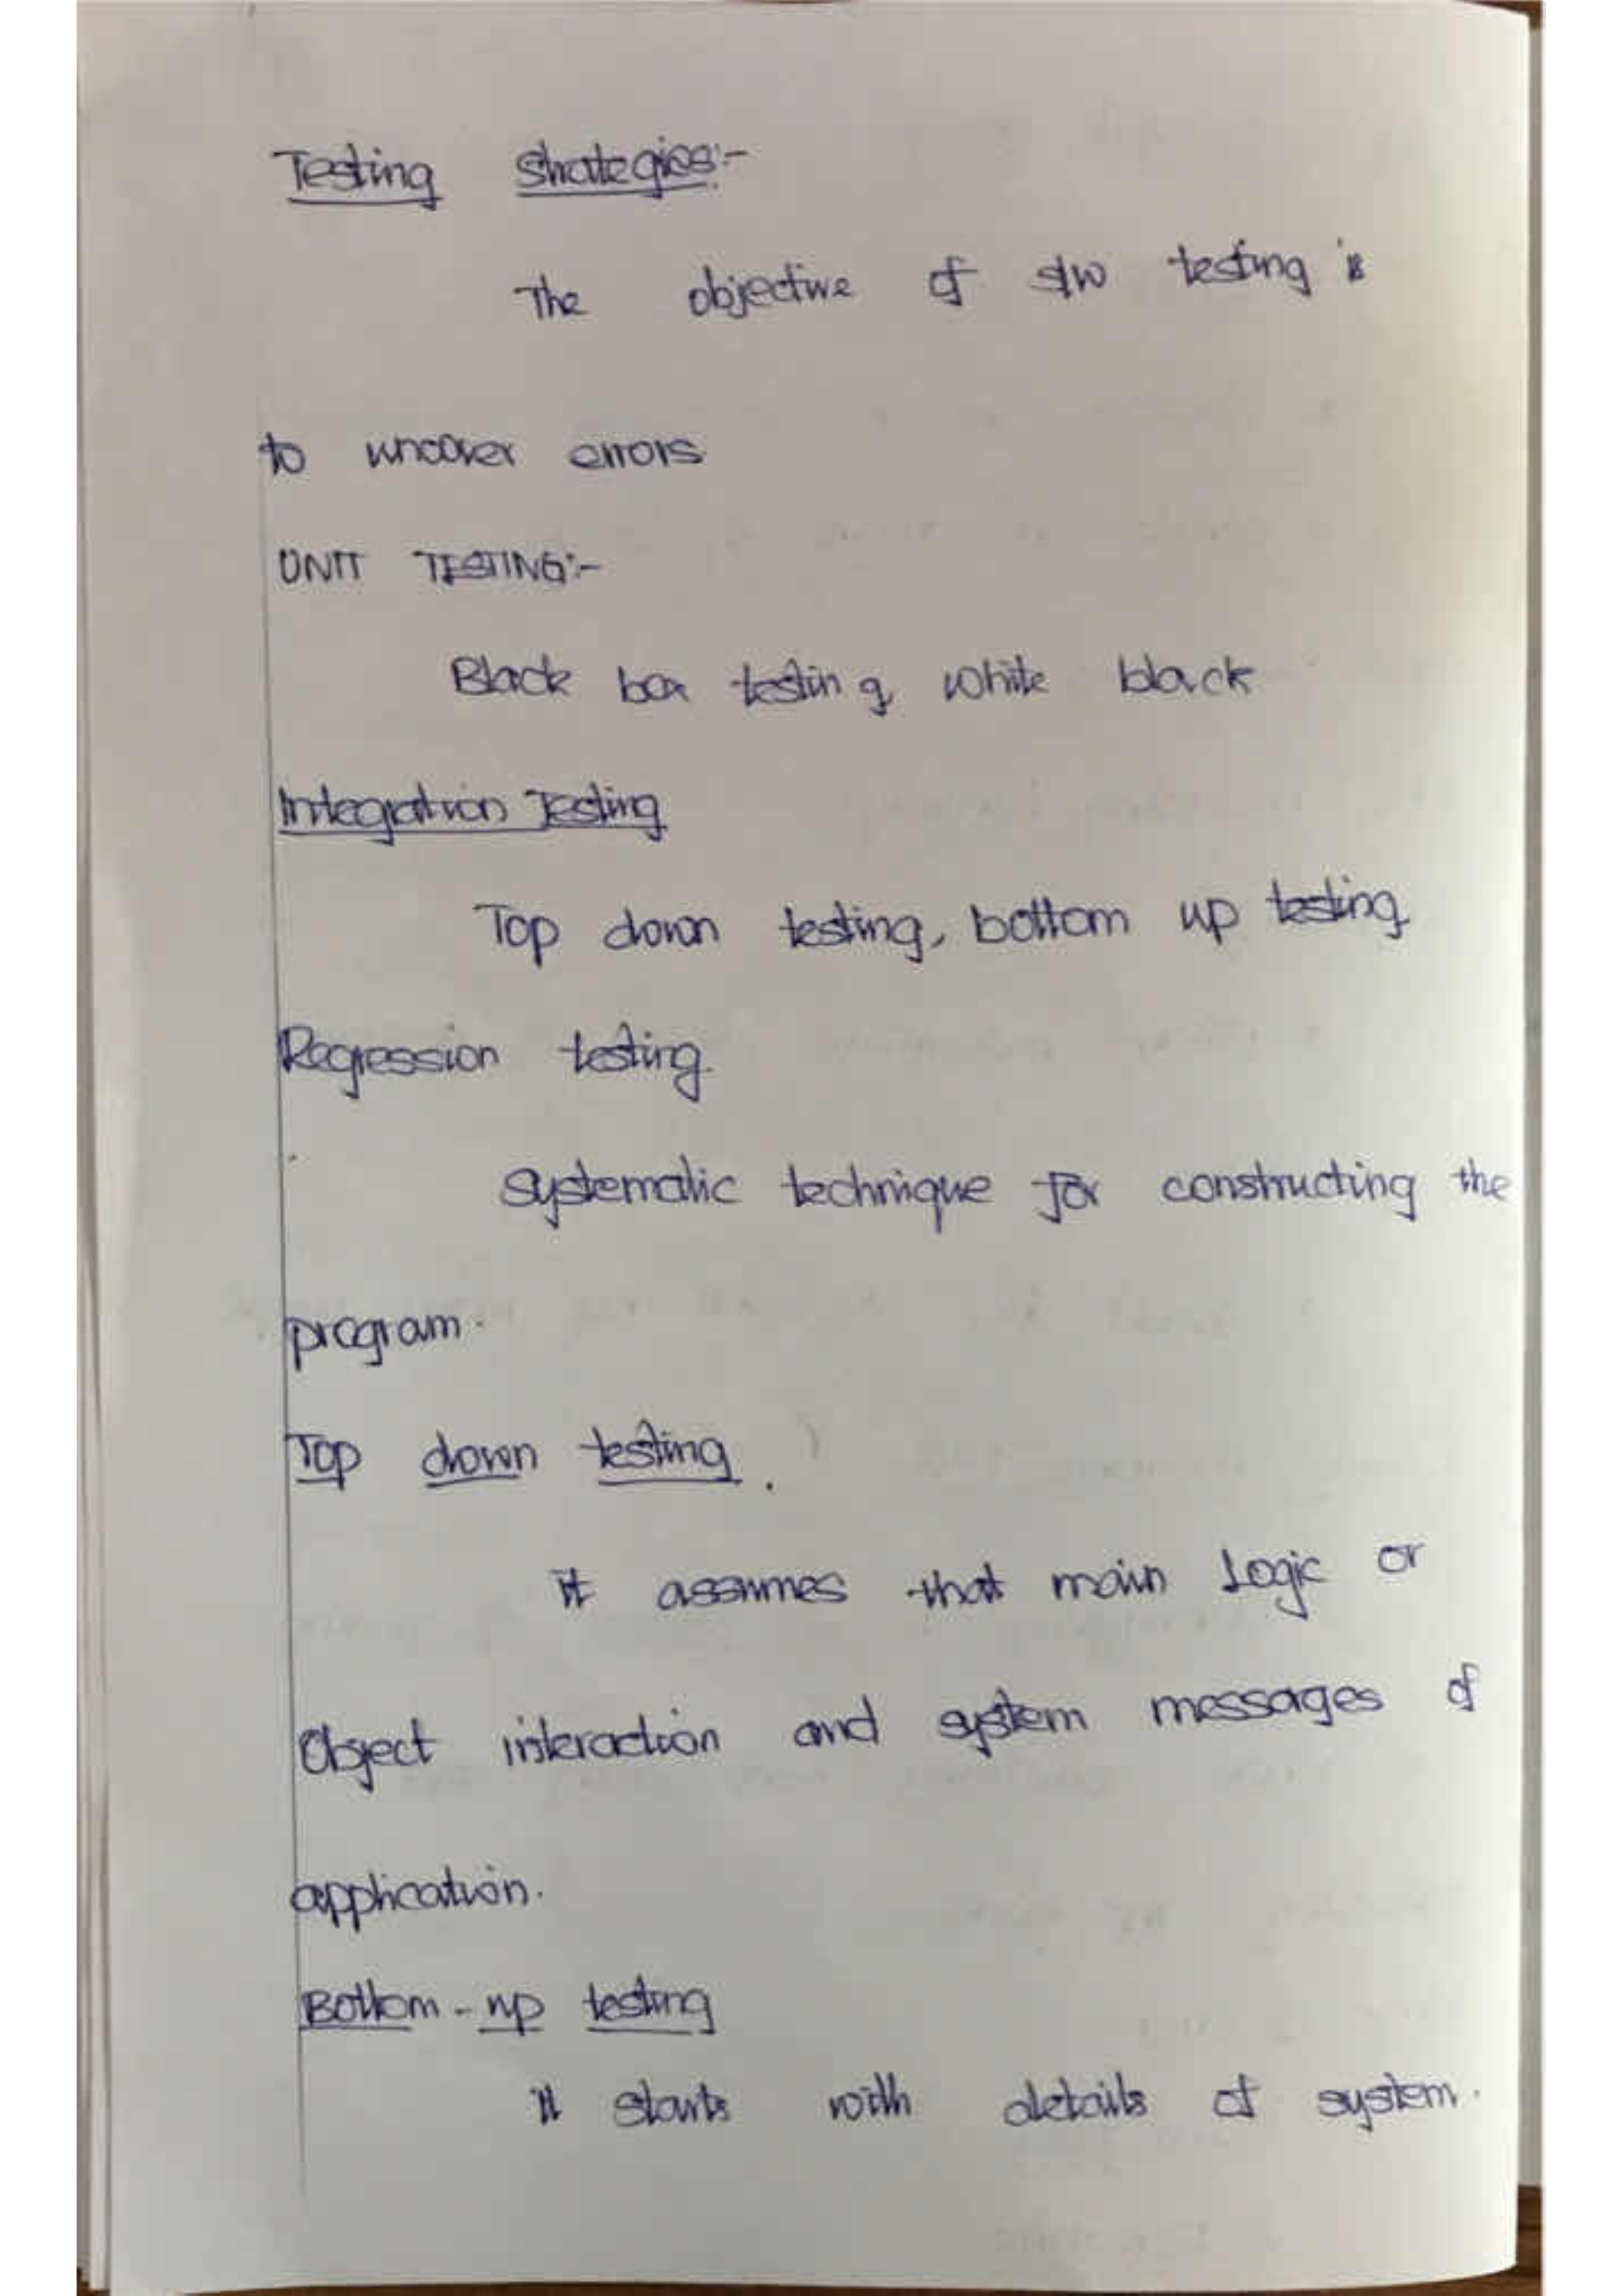 Testing Strategies:-
The objective of s/w testing is
to uncover errors
UNIT TESTING:-
Black box testing, white black
Integration Testing
Top down testing, bottom up testing
Regression testing.
Systematic technique for constructing the
program.
Top down testing.
it assumes that main Logic or
Object interaction and system messages of
application.
Bottom-up testing
it starts with details of system.